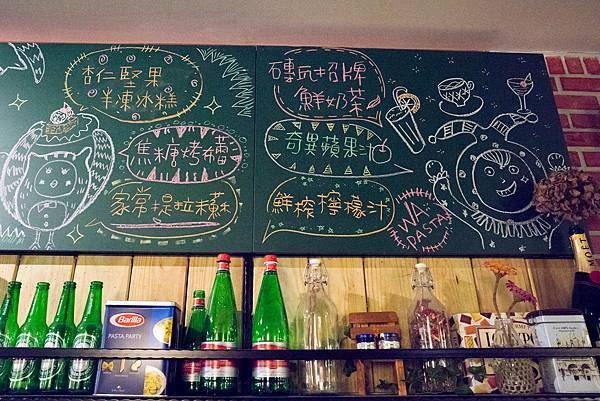 杏仁堅果
半凍冰糕
焦糖烤布蕾
家常提拉米蘇
磚瓦招牌
鮮奶茶
奇異蘋果汁
鮮榨檸檬汁
WA.
PASTA
Barilla
PASTA PARTY